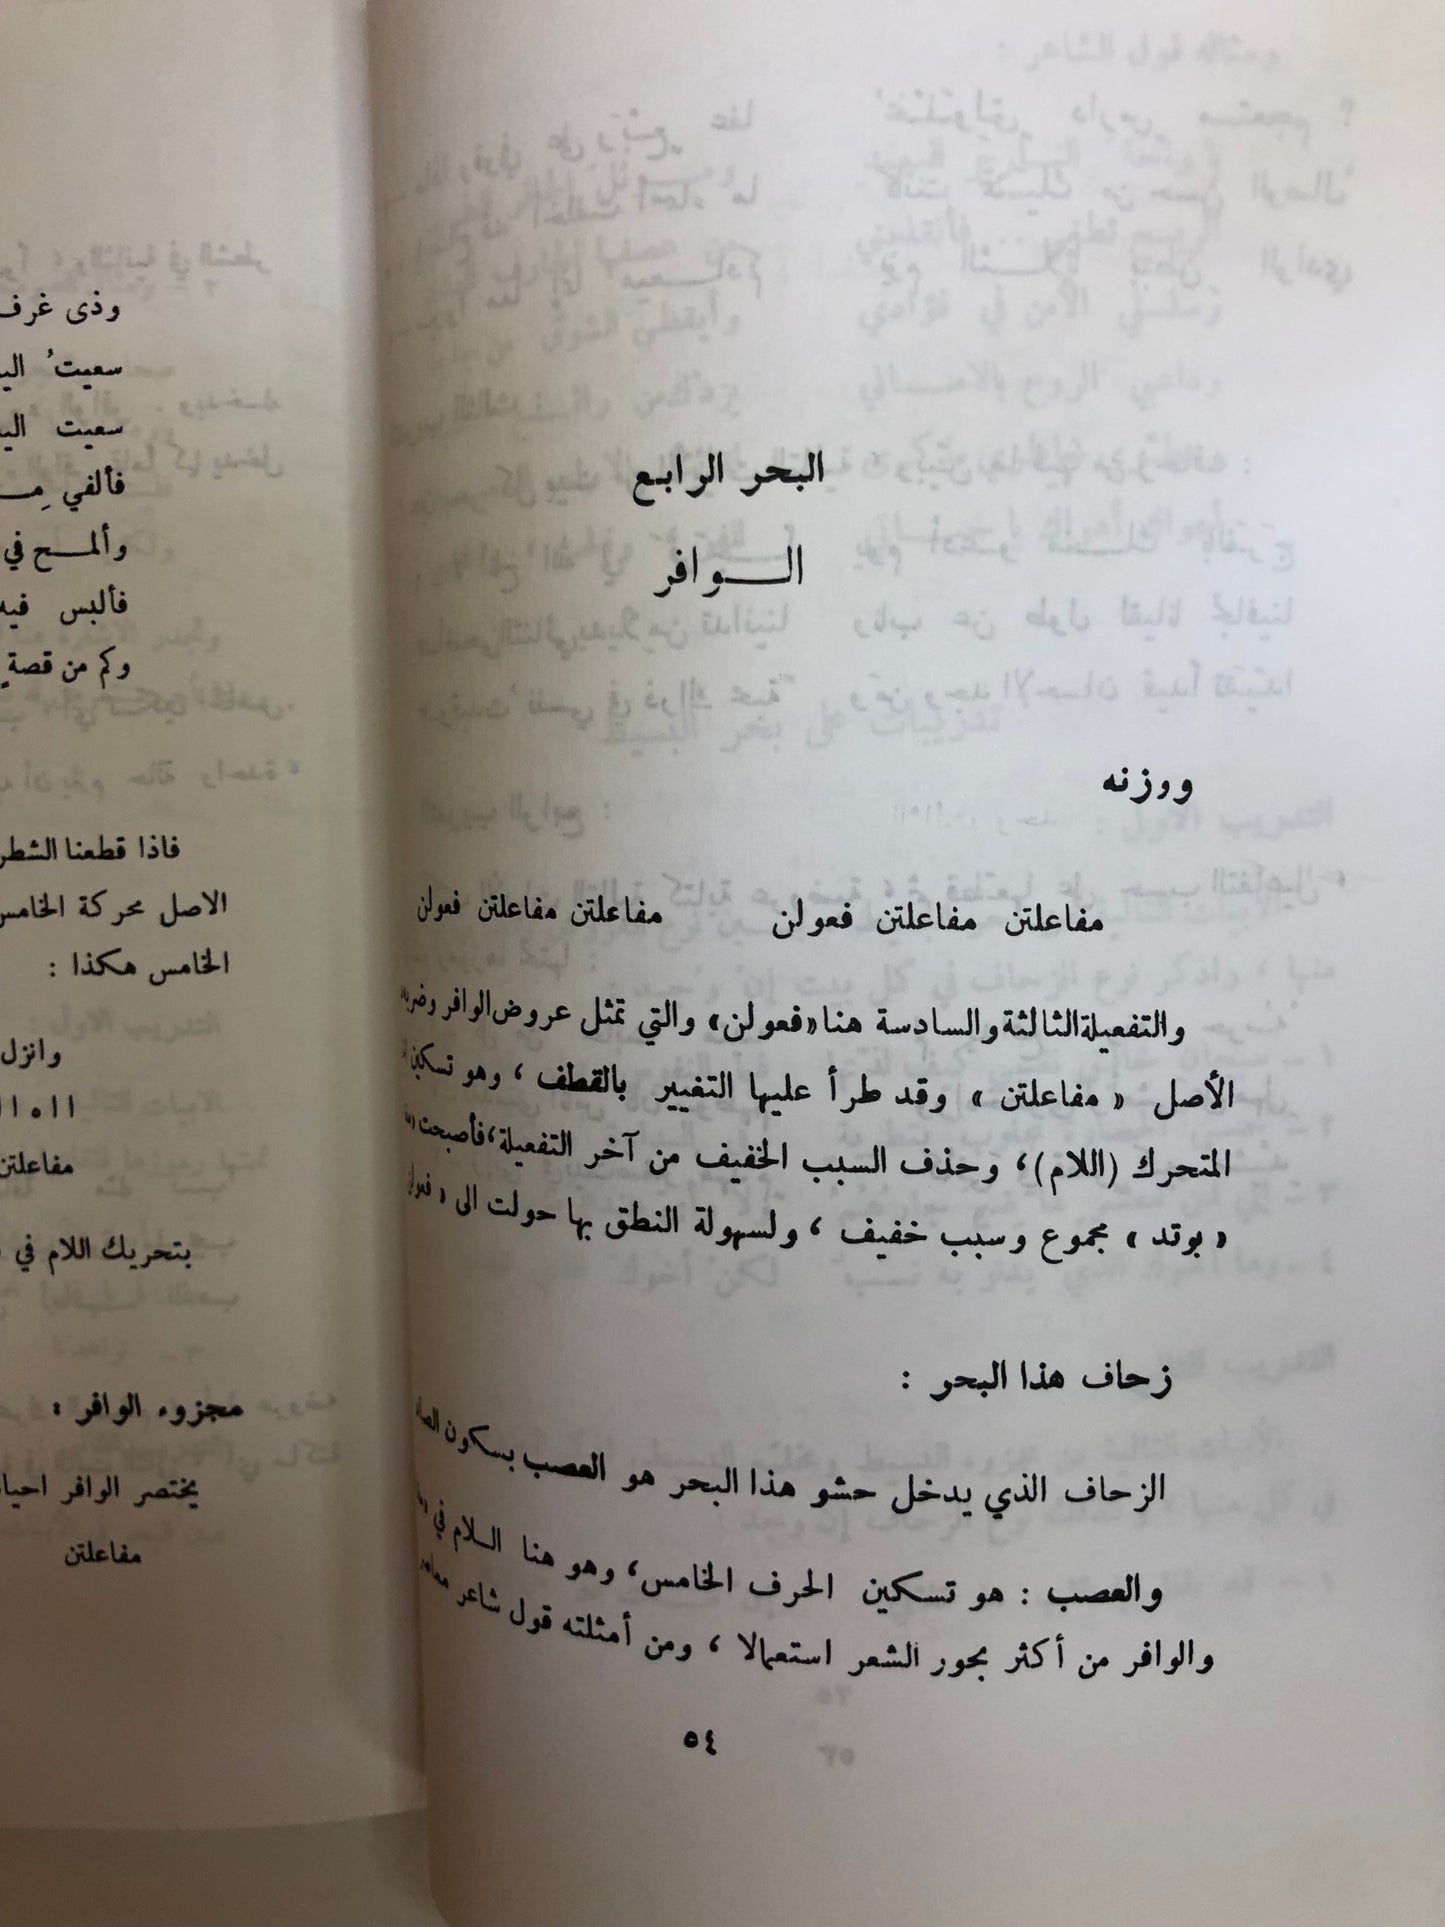 البحر الرابع
الـــوافر
ووزنه
مفاعلتن مفاعلتن فعولن مفاعلتن مفاعلتن فعولن
والتفعيلة الثالثة والسادسة هنا «فعولن» والتي تمثل عروض الوافر
الأصل « مفاعلتن » وقد طرأ عليها التغيير بالقطف ، وهو تسكين
المتحرك (اللام)، وحذف السبب الخفيف من آخر التفعيلة،فأصبحت
« بوتد » مجموع وسبب خفيف ، ولسهولة النطق بها حولت الى « فعولن
زحاف هذا البحر :
الزحاف الذي يدخل حشو هذا البحر هو العصب بسكون
والعصب : هو تسكين الحرف الخامس، وهو هنا اللام في
والوافر من أكثر بحور الشعر استعمالا ، ومن أمثلته قول شاعر
٥٤
وذى غرف
سعيتُ
سعيت
فألفي
وألمــح في
فألبس فيه
وكم من قصةٍ
فاذا قطعنا الشطر
الاصل محركة الخامس
الخامس هكذا :
وانزل
مفاعلتن
بتحريك اللام في
مجزوء الوافر :
يختصر الوافر
مفاعلتن